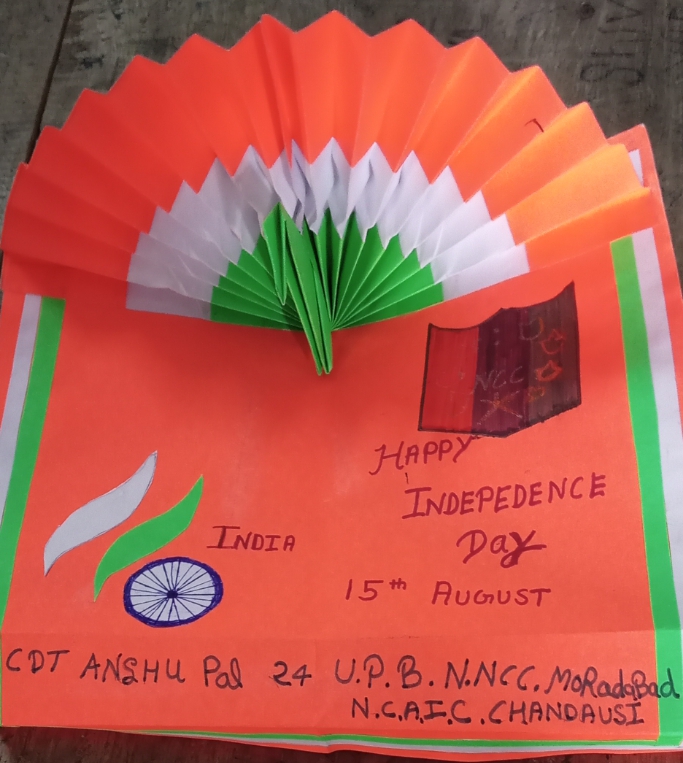 NCC
HAPPY
INDEPEDENCE
Day
INDIA
15th AUGUST
CDT ANSHU Pal 24 U.P.B.N.NCC.MoRadaBad
N.C.A.I.C.CHANDAUSI